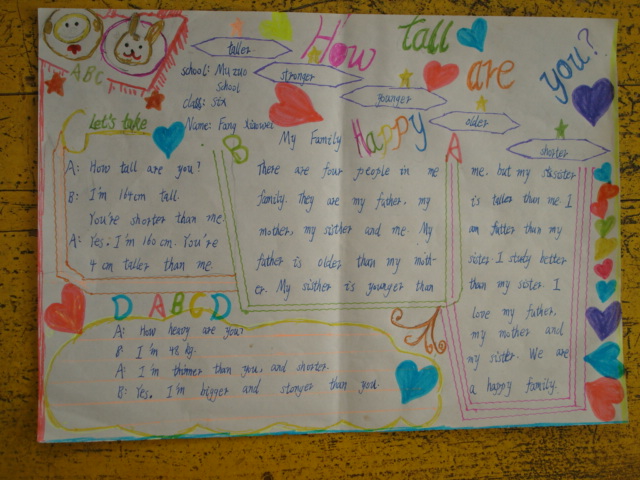 How tall are you?
ABC
taller
stronger
younger
older
shorter
school: Mu zuo
School
class: six
Name: Fang Xiaowei
Let's take
A: How tall are you?
B: I'm 164cm tall.
You're shorter than me.
A: Yes. I'm 160 cm. You're
4 cm taller than me.
Happy
B
My Family
There are four people in me
family. They are my father, my
mother, my sister and me. My
father is older than my moth-
er. My sisther is younger than
A
me. but my sissister
is taller than me. I
am fatter than my
sister. I study better
than my sister. I
love my father,
my mother and
my sister. We are
a happy family.
D ABCD
A: How heavy are you?
B: I'm 48 kg.
A: I'm thinner than you, and shorter.
B: Yes. I'm bigger and stonger than you.